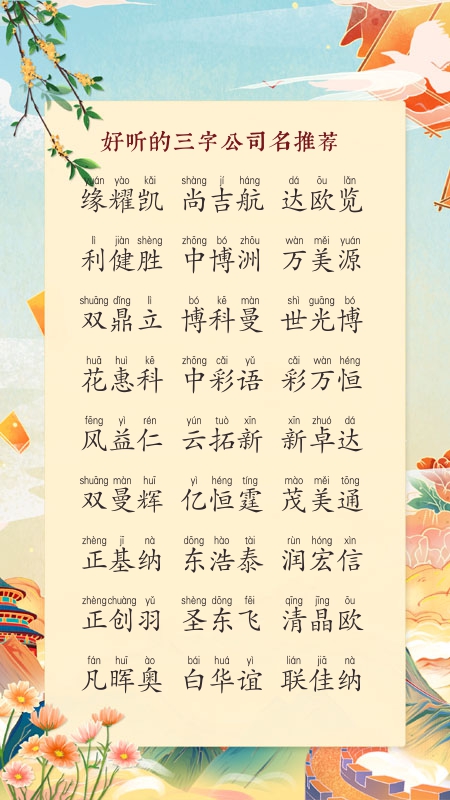 好听的三字公司名推荐
yuán yào kǎi shàng jí háng dá ōu lǎn
缘耀凯 尚吉航 达欧览
lì jiàn shèng zhōng bó zhōu wàn měi yuán
利健胜 中博洲 万美源
shuāng dǐng lì bó kē màn shì guāng bó
双鼎立 博科曼 世光博
huā huì kē zhōng cǎi yǔ cǎi wàn héng
花惠科 中彩语 彩万恒
fēng yì rén yún tuò xīn xīn zhuó dá
风益仁 云拓新 新卓达
shuāng màn huī yì héng tíng mào měi tōng
双曼辉 亿恒霆 茂美通
zhèng jī nà dōng hào tài rùn hóng xìn
正基纳 东浩泰 润宏信
zhèng chuàng yǔ shèng dōng fēi qīng jīng ōu
正创羽 圣东飞 清晶欧
fán huī ào bái huá yì lián jiā nà
凡晖奥 白华谊 联佳纳